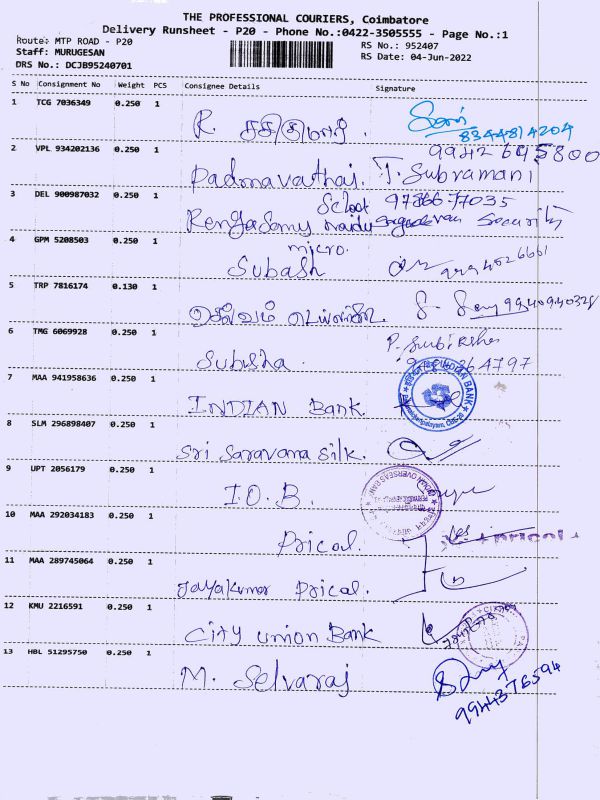 THE PROFESSIONAL COURIERS, Coimbatore
Delivery Runsheet - P20 - Phone No.:0422-3505555 - Page No.:1
Route: MTP ROAD - P20
RS No.: 952407
Staff: MURUGESAN
RS Date: 04-Jun-2022
DRS No.: DCJB95240701
S No Consignment No Weight PCS Consignee Details Signature
1 TCG 7036349 0.250 1 R. 8344814204
2 VPL 934202136 0.250 1 Padmavathai. T. Subramani 9942645800
3 DEL 900987032 0.250 1 Rengasamy naidu School 97866 77035 Security
4 GPM 5208503 0.250 1 micro. Subash 9994026661
5 TRP 7816174 0.130 1 செல்வம்
6 TMG 6069928 0.250 1 Subisha.
7 MAA 941958636 0.250 1 INDIAN Bank INDIAN BANK
8 SLM 296898407 0.250 1 Sri Saravana Silk.
9 UPT 2056179 0.250 1 I.O.B.
10 MAA 292034183 0.250 1 Pricol. pricol
11 MAA 289745064 0.250 1 Jayakumar Pricol.
12 KMU 2216591 0.250 1 City union Bank
13 HBL 51295750 0.250 1 M. Selvaraj 9944376594